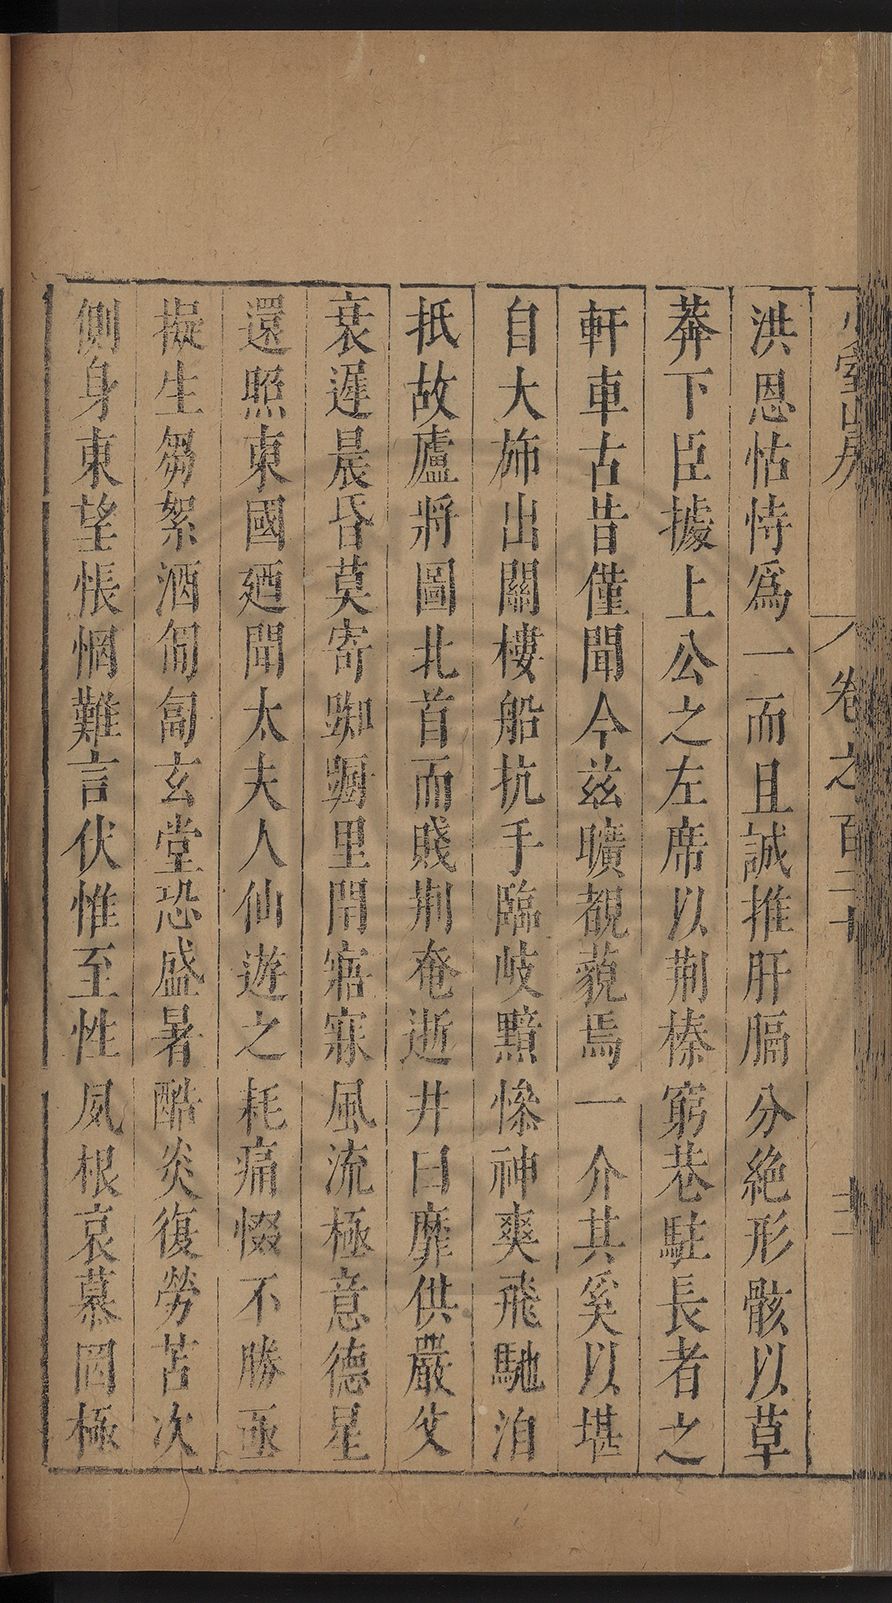 少室山房 卷之百二十
洪恩怙恃爲一而且誠推肝膈分絶形骸以草
莽下臣據上公之左席以荆榛窮巷駐長者之
軒車古昔僅聞今兹曠覩藐焉一介其奚以堪
自大斾出關樓船抗手臨岐黯慘神爽飛馳洎
抵故廬將圖北首而賤荆奄逝井臼靡供嚴父
衰遲晨昏莫寄踟躕里閈寤寐風流極意德星
還照東國廼聞太夫人仙遊之耗痛惙不勝亟
擬生芻絮酒匍匐玄堂恐盛暑酷炎復勞苫次
側身東望悵惘難言伏惟至性夙根哀慕罔極